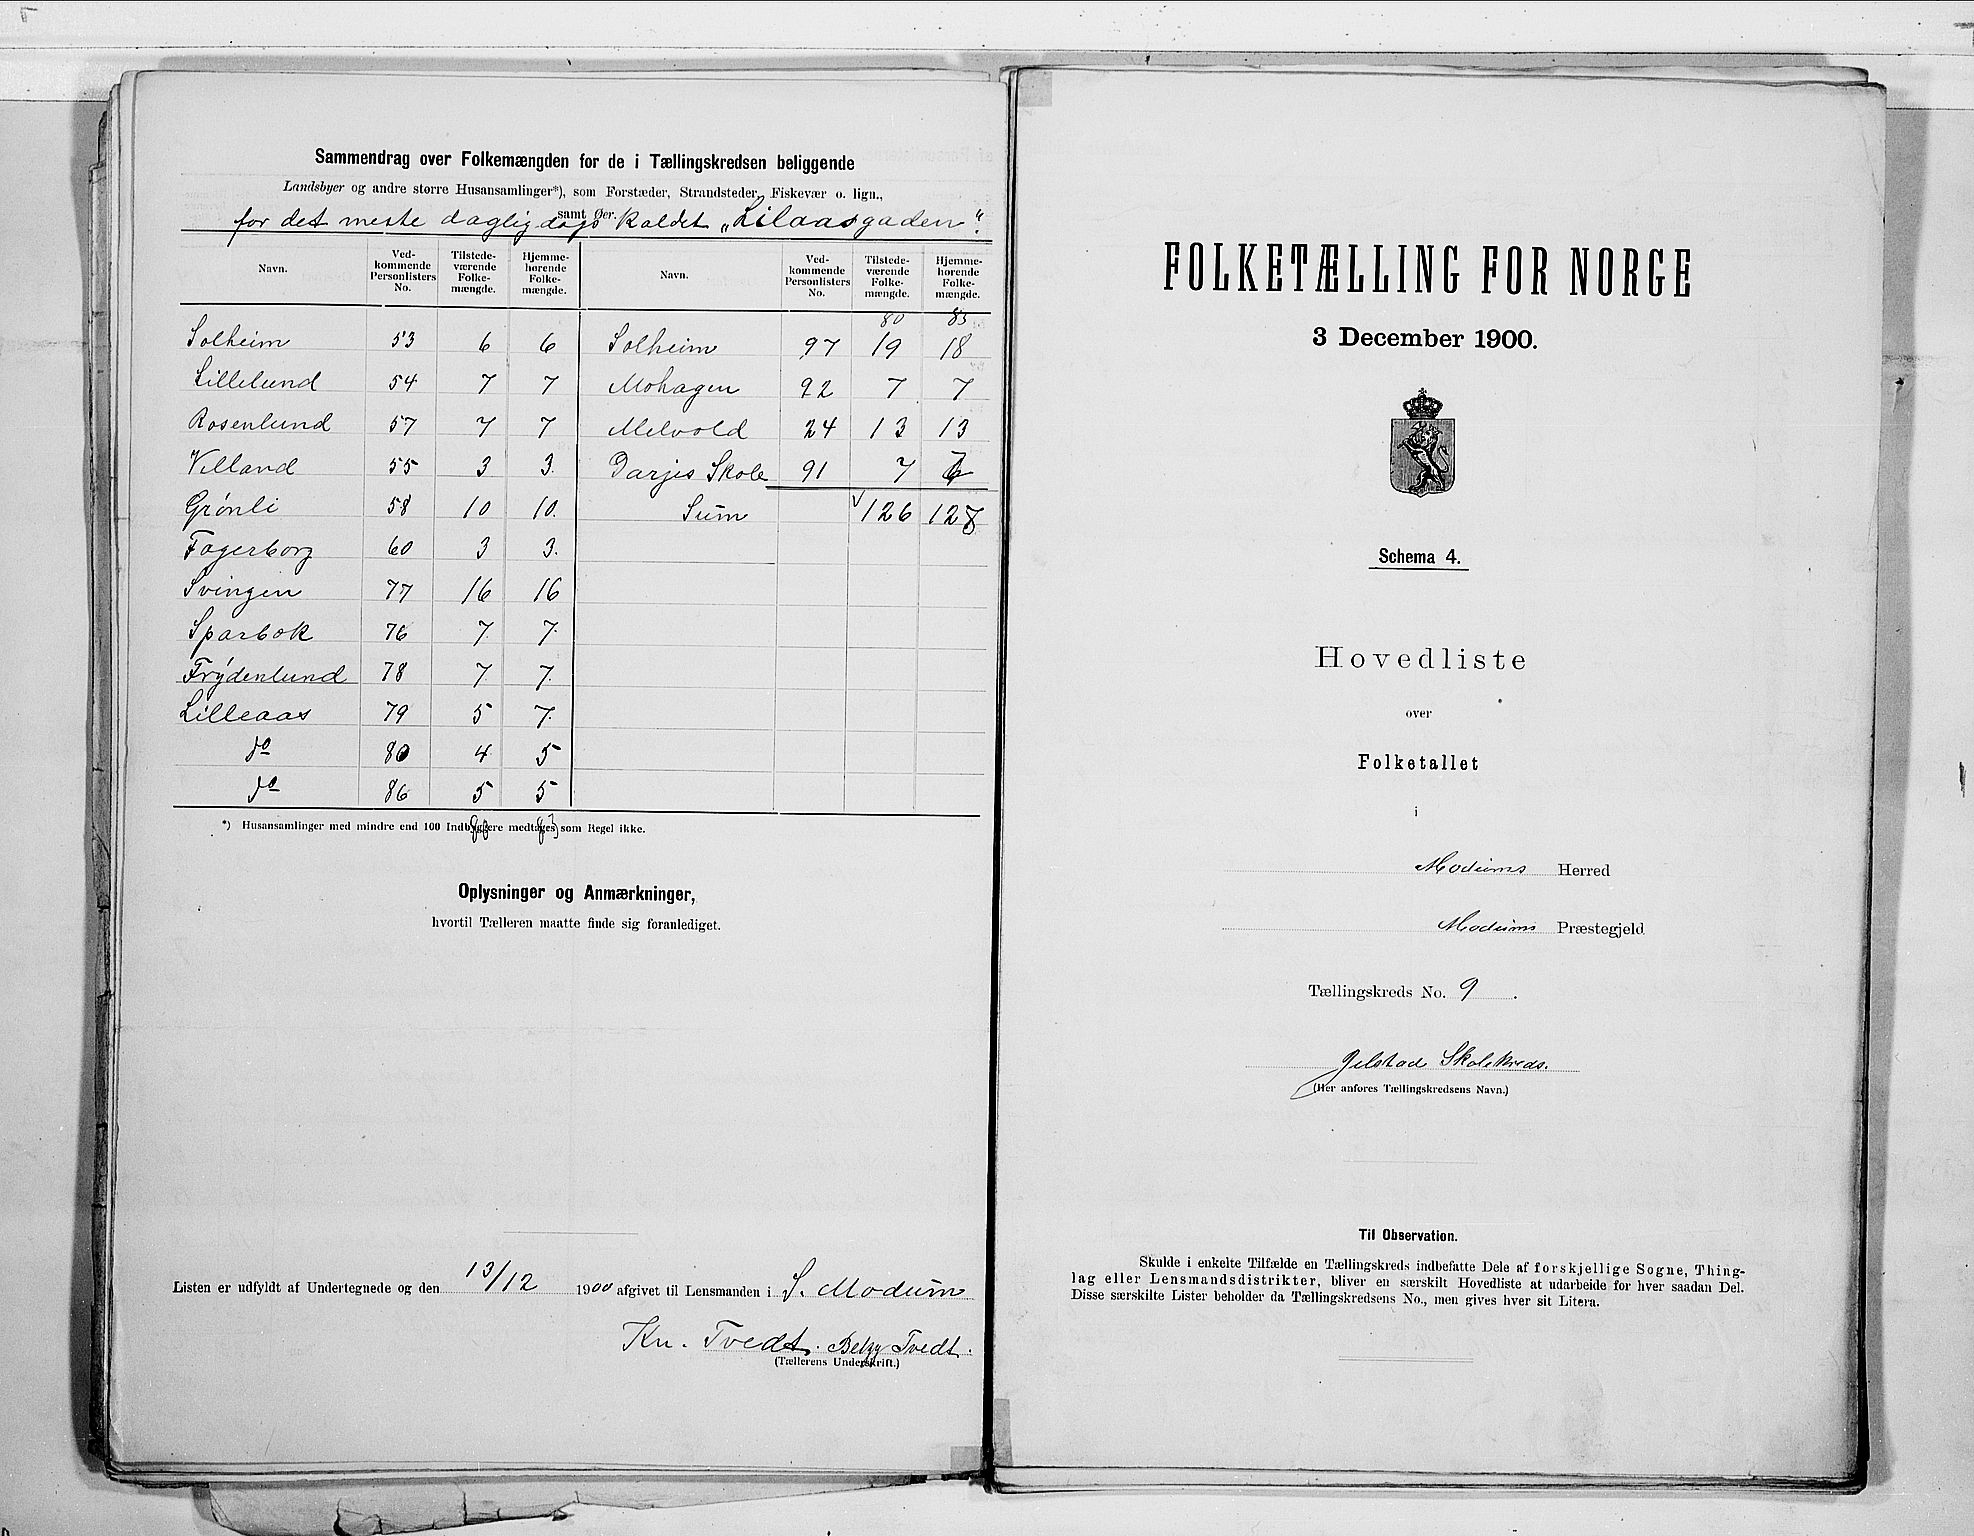 Sammendrag over Folkemængden for de i Tællingskredsen beliggende
Landsbyer og andre større Husansamlinger*), som Forstæder, Strandsteder, Fiskevær o. lign.,
samt Øer.
for det meste dagligdags kaldet „Lilaasgaden“.
Navn. Ved-kommende Personlisters No. Tilstede-værende Folke-mængde. Hjemme-hørende Folke-mængde. Navn. Ved-kommende Personlisters No. Tilstede-værende Folke-mængde. Hjemme-hørende Folke-mængde.
80 85
Solheim 53 6 6 Solheim 97 19 18
Lillelund 54 7 7 Mohagen 92 7 7
Rosenlund 57 7 7 Melvold 24 13 13
Villand 55 3 3. Darjes Skole 91 7
Grønli 58 10 10. Sum 126 127
Fagerborg 60 3 3.
Svingen 77 16 16
Sparbok 76 7 7.
Frydenlund 78 7. 7.
Lilleaas 79 5 7.
do 80 4 5
do 86 5 5
*) Husansamlinger med mindre end 100 Indbyggere medtages som Regel ikke.
Oplysninger og Anmærkninger,
hvortil Tælleren maatte finde sig foranlediget.
Listen er udfyldt af Undertegnede og den 13/12 1900 afgivet til Lensmanden i S. Modum
Kn. Tvedt. Betzy Tvedt.
(Tællerens Underskrift.)
FOLKETÆLLING FOR NORGE
3 December 1900.
Schema 4.
Hovedliste
over
Folketallet
i
Modums Herred
Modums Præstegjeld
Tællingskreds No. 9.
Gjelstad Skolekreds.
(Her anføres Tællingskredsens Navn.)
Til Observation.
Skulde i enkelte Tilfælde en Tællingskreds indbefatte Dele af forskjellige Sogne, Thing-
lag eller Lensmandsdistrikter, bliver en særskilt Hovedliste at udarbeide for hver saadan Del.
Disse særskilte Lister beholder da Tællingskredsens No., men gives hver sit Litera.